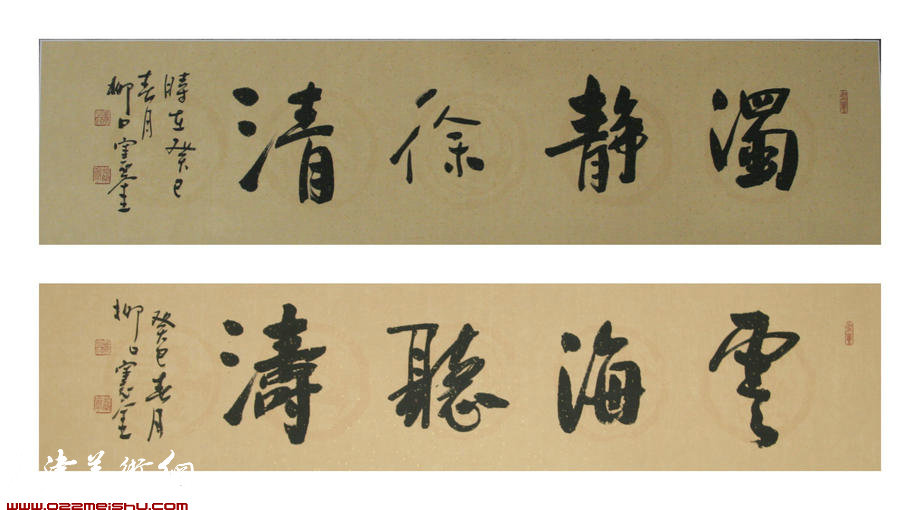 濁靜徐清
時在癸巳
春月
柳口憲奎
雲海聽濤
癸巳春月
柳口憲奎
津美術網
www.022meishu.com